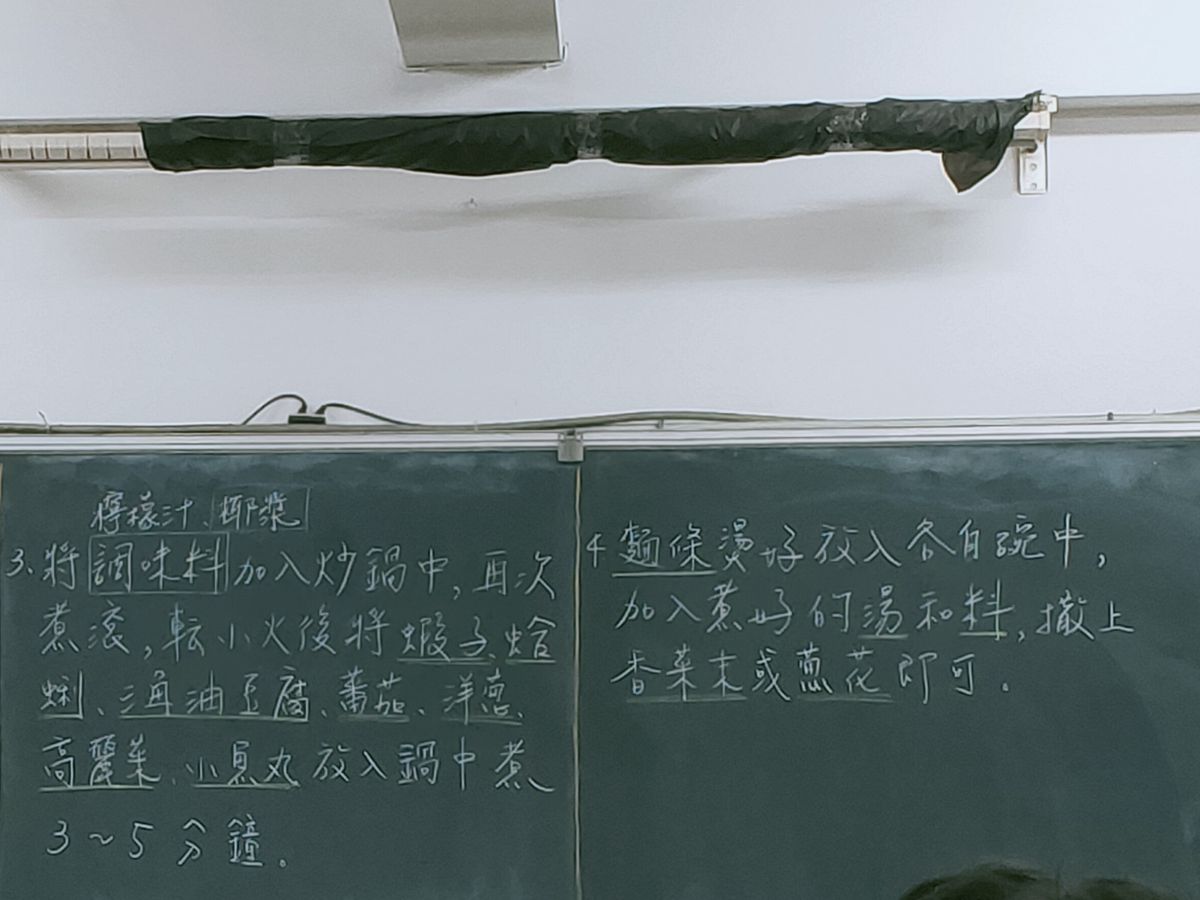 檸檬汁、椰漿
3、將調味料加入炒鍋中,再次
煮滾,転小火後將蝦子、蛤
蜊、三角油豆腐、蕃茄、洋蔥、
高麗菜、小魚丸放入鍋中煮
3~5分鐘。
4 麵條燙好放入各自碗中,
加入煮好的湯和料,撒上
香菜末或蔥花即可。